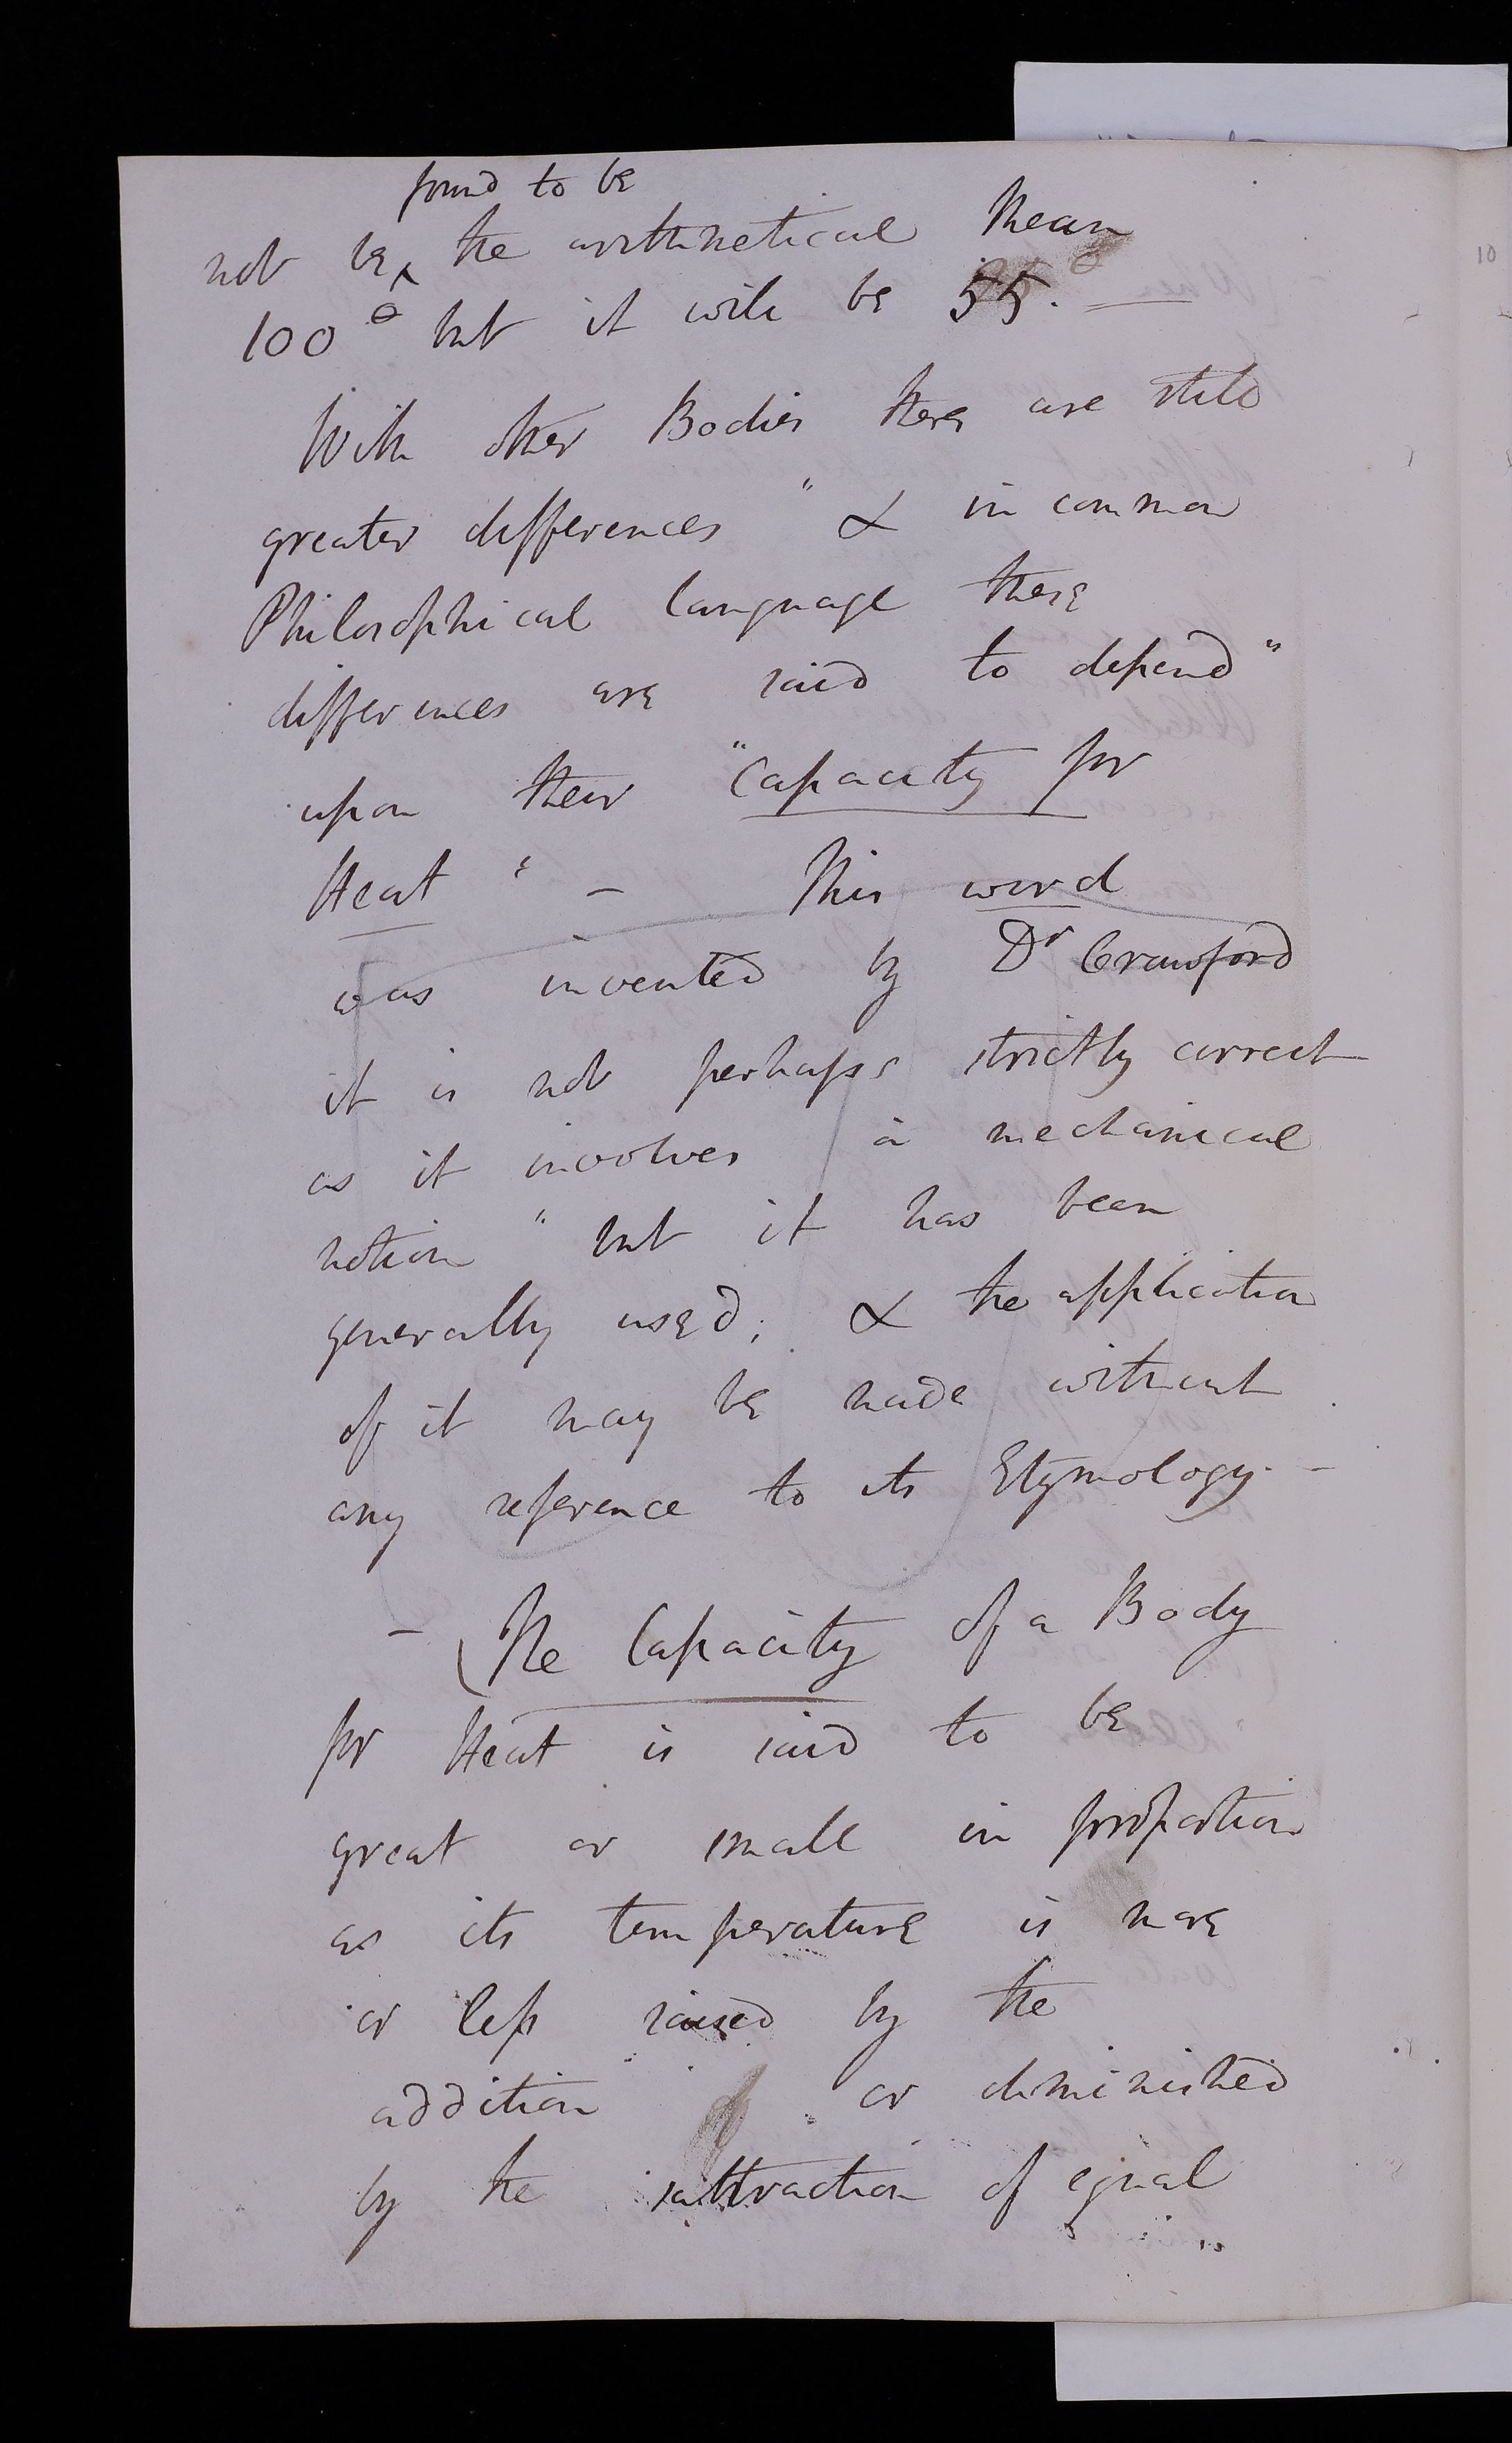 found to be
not be ‸ the arithmetical Mean
100° but it will be 55°. —
With other Bodies there are still
greater differences " & in common
Philosophical language these
differences are said to depend "
upon their "Capacity for
Heat " — This word
was invented by Dr Crawford
it is not perhaps strictly correct
as it involves a mechanical
notion " but it has been
generally used; & the application
of it may be made without
any reference to its Etymology. —
— (The Capacity of a Body
for Heat is said to be
great or small in proportion
as its temperature is more
or less raised by the
addition or diminished
by the of equal
10